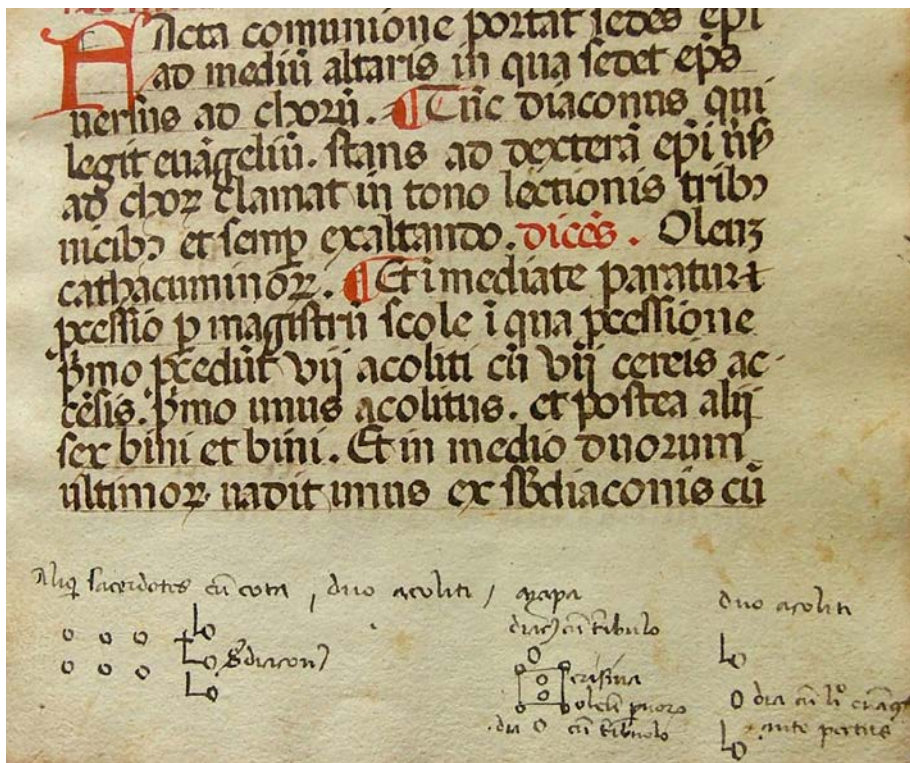 Facta comunione portat᷑ sedes ep̄i
ad mediū altaris in qua sedet ep̄s
uersus ad chorū. ¶ Tūc diaconus qui
legit euāgeliū. stans ad dexterā ep̄i ūsꝰ
ad chorꝝ clamat in tono lectionis tribꝰ
uicibꝰ et semꝑ exaltando. dicēs. Oleuꝫ
cathacuminoꝝ. ¶ Et īmediate paratur
ꝓcessio ꝑ magistrū scole ī qua ꝓcessione
p̄mo p̄cedūt vij acoliti cū vij cereis ac
cēsis. p̄mo unus acolitus. et postea alij
sex bini et bini. Et in medio duorum
ultimoꝝ uadit unus ex sb̄diaconis cū
Aliqͥ sacerdotes cū cota, duo acoliti /
duo acoliti
diac̄ cū t̄ibulo
S̄diaconꝰ
crisma
oleū puroꝝ
dia cū li᷒ euāg
dia cū t̄ibulo
ante pectus